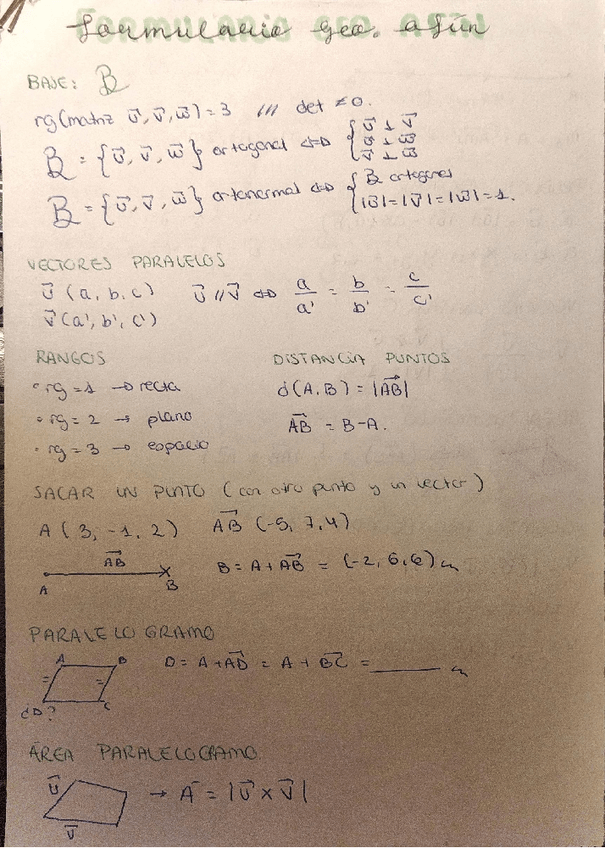 formulario geo. afín
BASE: B
rg(matriz ū, v̄, w̄) = 3 /// det ≠ 0.
B = {ū, v̄, w̄} ortogonal ⇔ { ū ⊥ v̄
ū ⊥ w̄
v̄ ⊥ w̄
B = {ū, v̄, w̄} ortonormal ⇔ { B ortogonal
|ū| = |v̄| = |w̄| = 1.
VECTORES PARALELOS
ū (a, b, c) ū // v̄ ⇔ a/a' = b/b' = c/c'
v̄ (a', b', c')
RANGOS
• rg = 1 → recta
• rg = 2 → plano
• rg = 3 → espacio
DISTANCIA PUNTOS
d(A, B) = |AB→|
AB→ = B-A.
SACAR UN PUNTO (con otro punto y un vector)
A (3, -1, 2) AB→ (-5, 7, 4)
AB→
A B
B = A + AB→ = (-2, 6, 6) m
PARALELOGRAMO
A B
¿D? C
D = A + AD→ = A + BC→ = ______ m
ÁREA PARALELOGRAMO
ū
v̄
→ A = |ū x v̄|